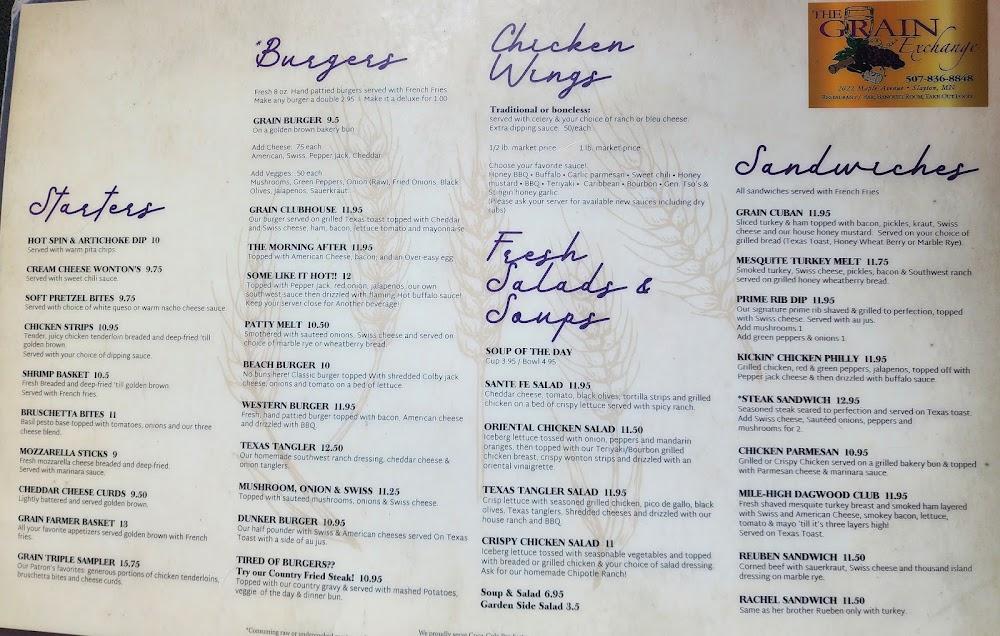 Starters
HOT SPIN & ARTICHOKE DIP 10
Served with warm pita chips.
CREAM CHEESE WONTON'S 9.75
Served with sweet chili sauce.
SOFT PRETZEL BITES 9.75
Served with choice of white queso or warm nacho cheese sauce
CHICKEN STRIPS 10.95
Tender, juicy chicken tenderloin breaded and deep-fried 'till
golden brown.
Served with your choice of dipping sauce.
SHRIMP BASKET 10.5
Fresh Breaded and deep-fried 'till golden brown.
Served with French fries.
BRUSCHETTA BITES 11
Basil pesto base topped with tomatoes, onions and our three
cheese blend.
MOZZARELLA STICKS 9
Fresh mozzarella cheese breaded and deep-fried.
Served with marinara sauce.
CHEDDAR CHEESE CURDS 9.50
Lightly battered and served golden brown.
GRAIN FARMER BASKET 13
All your favorite appetizers served golden brown with French
fries.
GRAIN TRIPLE SAMPLER 15.75
Our Patron's favorites generous portions of chicken tenderloins,
bruschetta bites and cheese curds.
*Burgers
Fresh 8 oz. Hand pattied burgers served with French Fries
Make any burger a double 2.95 | Make it a deluxe for 1.00
GRAIN BURGER 9.5
On a golden brown bakery bun
Add Cheese: .75 each
American, Swiss, Pepper Jack, Cheddar
Add Veggies: .50 each
Mushrooms, Green Peppers, Onion (Raw), Fried Onions, Black
Olives, Jalapenos, Sauerkraut
GRAIN CLUBHOUSE 11.95
Our burger served on grilled Texas toast topped with Cheddar
and Swiss cheese, ham, bacon, lettuce tomato and mayonnaise
THE MORNING AFTER 11.95
Topped with American Cheese, bacon, and an Over-easy egg
SOME LIKE IT HOT!! 12
Topped with Pepper jack, red onion, jalapenos, our own
southwest sauce then drizzled with flaming Hot buffalo sauce!
Keep your server close for Another beverage!
PATTY MELT 10.50
Smothered with sauteed onions, Swiss cheese and served on
choice of marble rye or wheatberry bread.
BEACH BURGER 10
No buns here! Classic burger topped With shredded Colby jack
cheese, onions and tomato on a bed of lettuce.
WESTERN BURGER 11.95
Fresh, hand pattied burger topped with bacon, American cheese
and drizzled with BBQ.
TEXAS TANGLER 12.50
Our homemade southwest ranch dressing, cheddar cheese &
onion tanglers
MUSHROOM, ONION & SWISS 11.25
Topped with sauteed mushrooms, onions & Swiss cheese.
DUNKER BURGER 10.95
Our half pounder with Swiss & American cheeses served On Texas
Toast with a side of au jus.
TIRED OF BURGERS??
Try our Country Fried Steak! 10.95
Topped with our country gravy & served with mashed Potatoes,
veggie of the day & dinner bun.
Chicken
Wings
Traditional or boneless:
served with celery & your choice of ranch or bleu cheese.
Extra dipping sauce .50/each
1/2 lb. market price 1 lb. market price
Choose your favorite sauce!
Honey BBQ • Buffalo • Garlic parmesan • Sweet chili • Honey
mustard • BBQ • Teriyaki • Caribbean • Bourbon • Gen. Tso's &
Stingin honey garlic
(Please ask your server for available new sauces including dry
rubs)
Fresh
Salads &
Soups
SOUP OF THE DAY
Cup 3.95 / Bowl 4.95
SANTE FE SALAD 11.95
Cheddar cheese, tomato, black olives, tortilla strips and grilled
chicken on a bed of crispy lettuce served with spicy ranch.
ORIENTAL CHICKEN SALAD 11.50
Iceberg lettuce tossed with onion, peppers and mandarin
oranges, then topped with our Teriyaki/Bourbon grilled
chicken breast, crispy wonton strips and drizzled with an
oriental vinaigrette.
TEXAS TANGLER SALAD 11.95
Crisp lettuce with seasoned grilled chicken, pico de gallo, black
olives, Texas tanglers, Shredded cheeses and drizzled with our
house ranch and BBQ.
CRISPY CHICKEN SALAD 11
Iceberg lettuce tossed with seasonable vegetables and topped
with breaded or grilled chicken & your choice of salad dressing.
Ask for our homemade Chipotle Ranch!
Soup & Salad 6.95
Garden Side Salad 3.5
THE
GRAIN
Exchange
507-836-8848
2021 Maple Avenue • Slayton, MN
RESTAURANT / BAR, BANQUET ROOM, TAKE OUT FOOD
Sandwiches
All sandwiches served with French Fries
GRAIN CUBAN 11.95
Sliced turkey & ham topped with bacon, pickles, kraut, Swiss
cheese and our house honey mustard. Served on your choice of
grilled bread (Texas Toast, Honey Wheat Berry or Marble Rye).
MESQUITE TURKEY MELT 11.75
Smoked turkey, Swiss cheese, pickles, bacon & Southwest ranch
served on grilled honey wheatberry bread.
PRIME RIB DIP 11.95
Our signature prime rib shaved & grilled to perfection, topped
with Swiss cheese. Served with au jus.
Add mushrooms 1
Add green peppers & onions 1
KICKIN' CHICKEN PHILLY 11.95
Grilled chicken, red & green peppers, jalapenos, topped off with
Pepper jack cheese & then drizzled with buffalo sauce.
*STEAK SANDWICH 12.95
Seasoned steak seared to perfection and served on Texas toast.
Add Swiss cheese, Sautéed onions, peppers and
mushrooms for 2.
CHICKEN PARMESAN 10.95
Grilled or Crispy Chicken served on a grilled bakery bun & topped
with Parmesan cheese & marinara sauce.
MILE-HIGH DAGWOOD CLUB 11.95
Fresh shaved mesquite turkey breast and smoked ham layered
with Swiss and American Cheese, smokey bacon, lettuce,
tomato & mayo 'til it's three layers high!
Served on Texas Toast.
REUBEN SANDWICH 11.50
Corned beef with sauerkraut, Swiss cheese and thousand island
dressing on marble rye.
RACHEL SANDWICH 11.50
Same as her brother Rueben only with turkey.